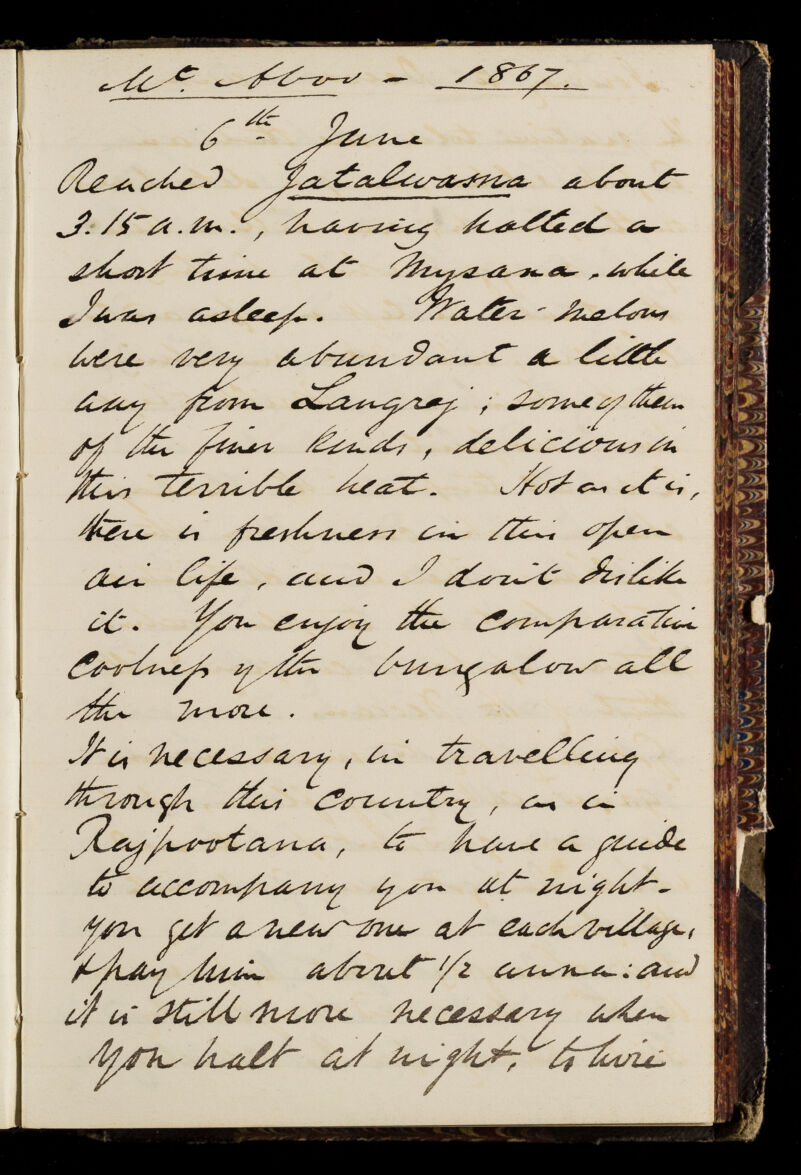 Mt. Aboo - 1867.
6th June
Reached Jatalwasna about
3.15 a.m., having halted a
short time at Mysana, while
I was asleep. Water-melons
were very abundant a little
way from Langrej; some of them
of the finer kinds, delicious in
this terrible heat. Hot as it is,
there is freshness in this open
air life, and I don't dislike
it. You enjoy the comparative
coolness of the bungalow all
the more.
It is necessary, in travelling
through this country, as in
Rajpootana, to have a guide
to accompany you at night -
you get a new one at each village,
& pay him about 1/2 anna: and
it is still more necessary when
you halt at night, to hire